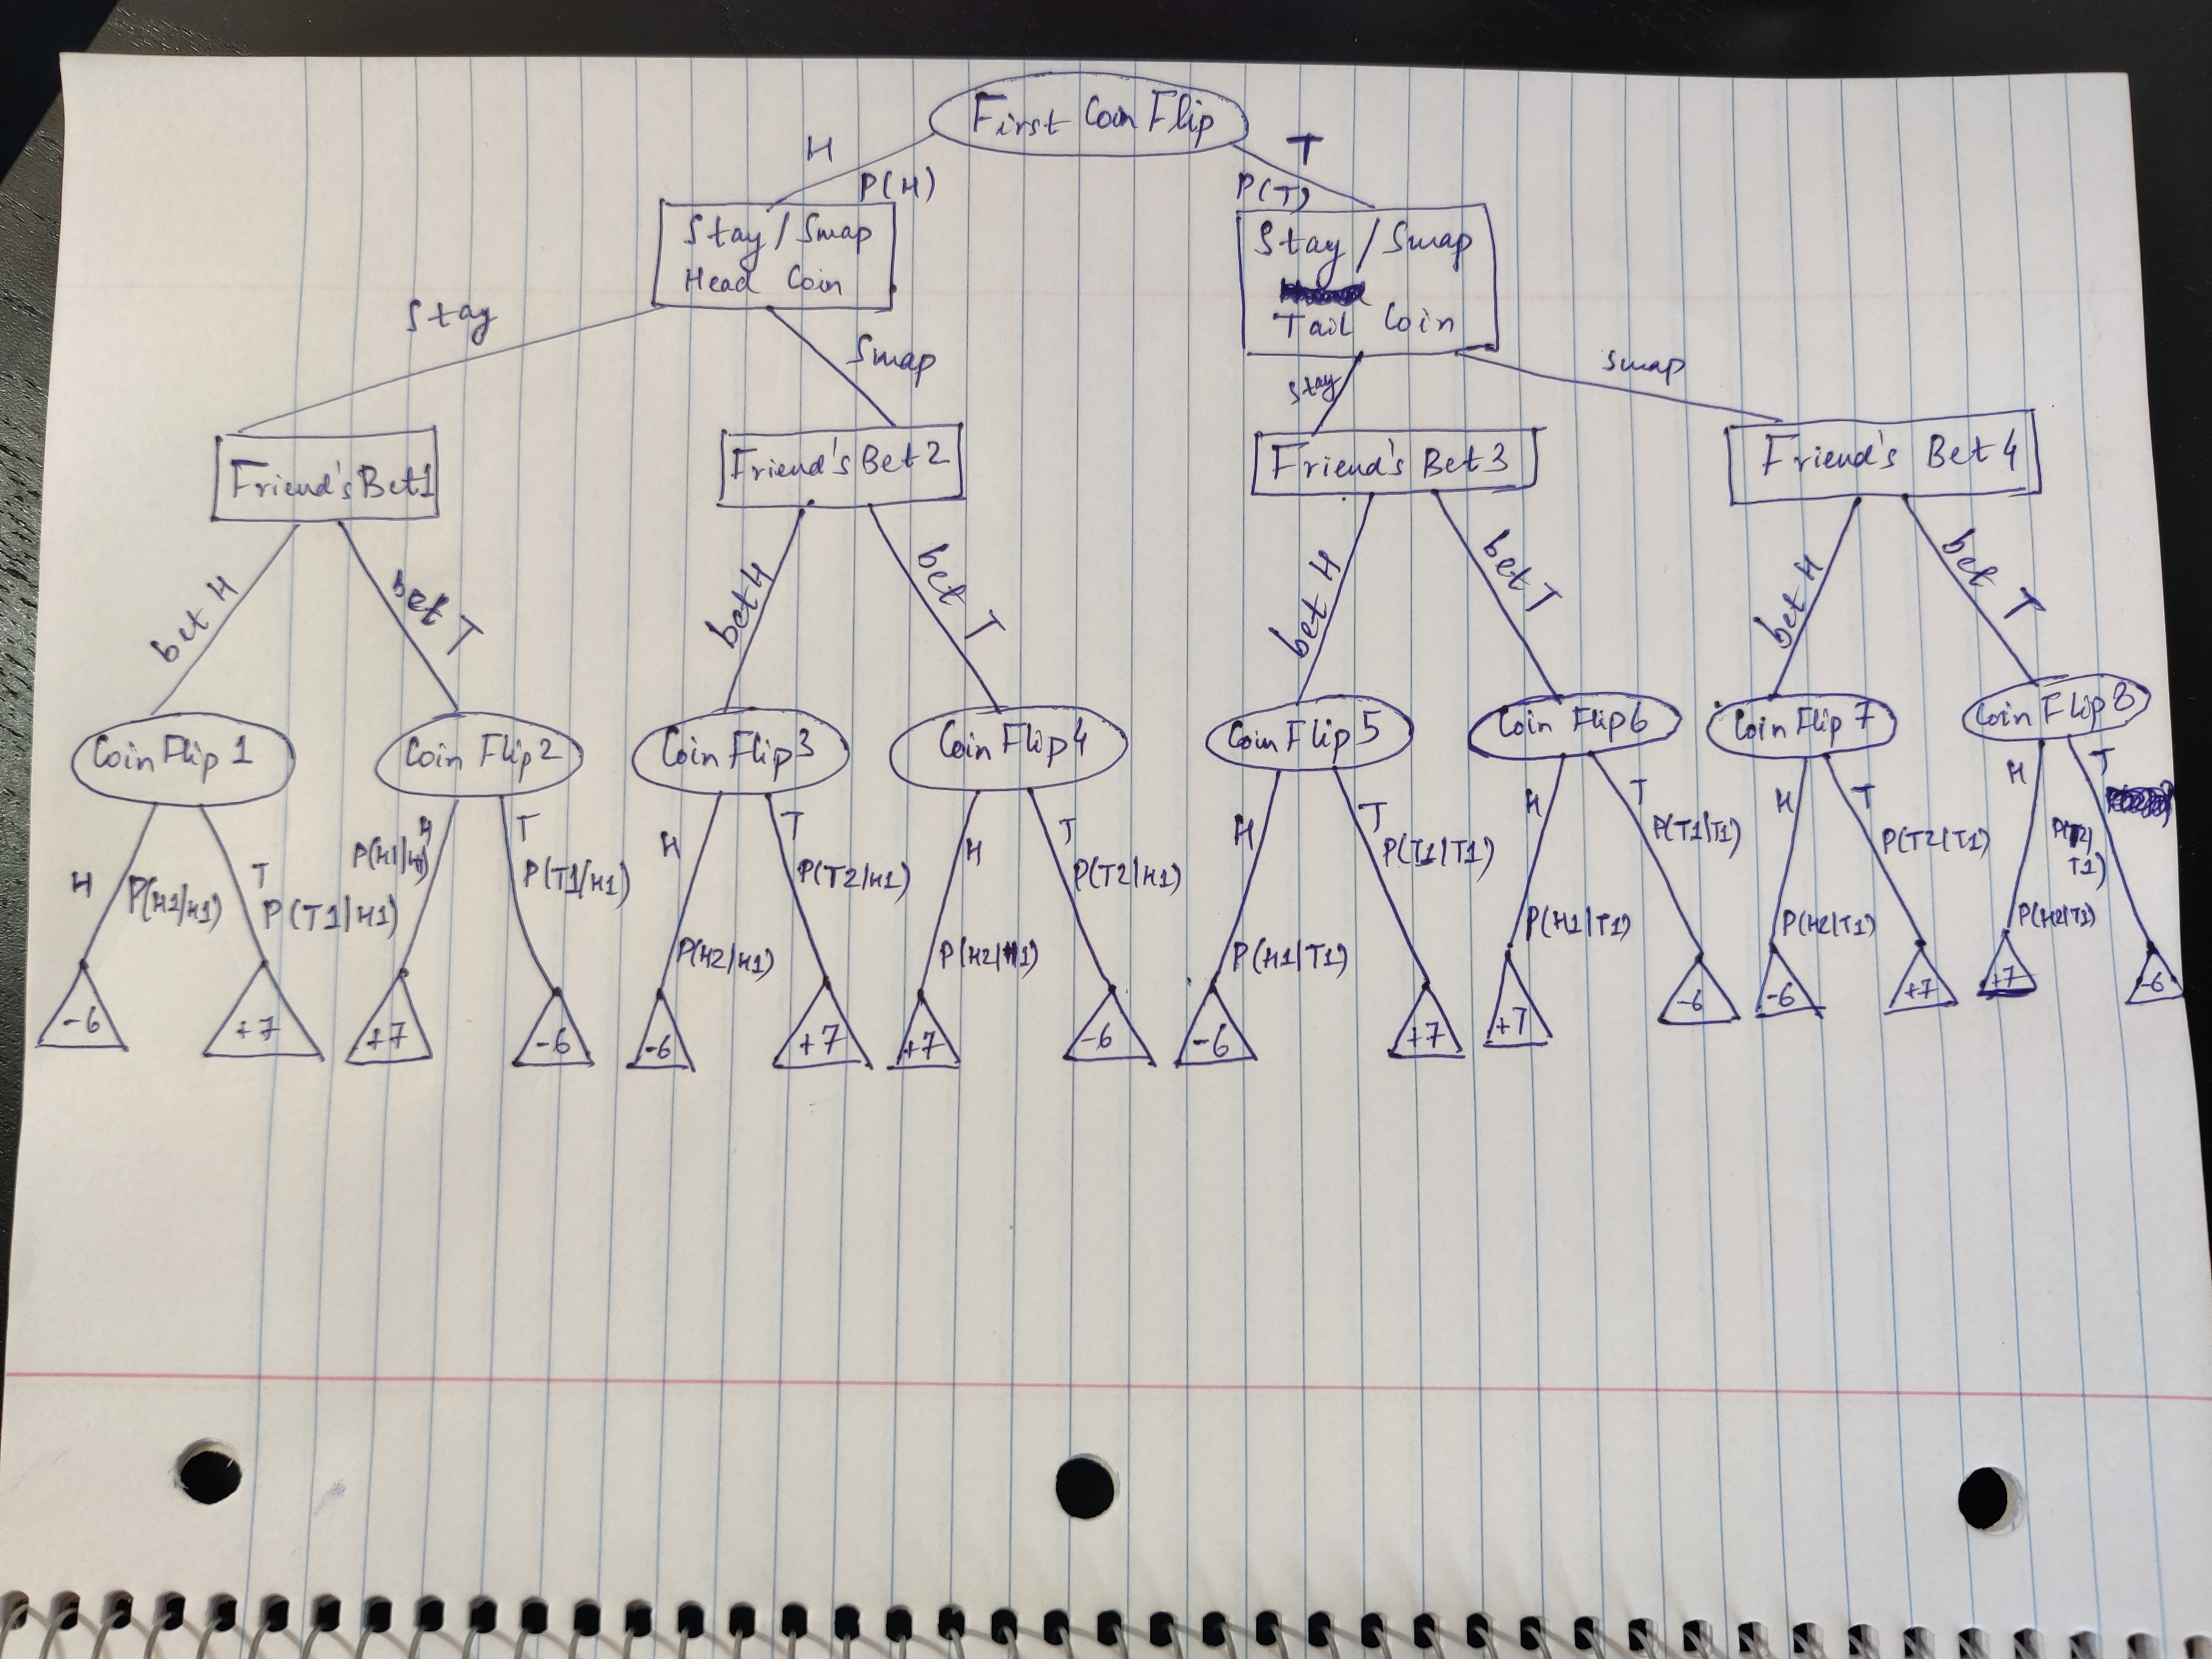 First Coin Flip
H
T
P(H)
P(T)
Stay / Swap
Head Coin
Stay / Swap
Tail Coin
Stay
Swap
stay
swap
Friend's Bet1
Friend's Bet2
Friend's Bet3
Friend's Bet 4
bet H
bet T
bet H
bet T
bet H
bet T
bet H
bet T
Coin Flip 1
Coin Flip2
Coin Flip3
Coin Flip4
Coin Flip 5
Coin Flip6
Coin Flip 7
Coin Flip 8
H
P(H1/H1)
T
P(T1|H1)
H
T
P(T1/H1)
H
P(H2/H1)
T
P(T2/H1)
H
P(H2/H1)
T
P(T2/H1)
H
P(H1/T1)
T
P(T1|T1)
H
P(H1|T1)
T
P(T1|T1)
H
P(H2|T1)
T
P(T2|T1)
H
P(H2|T1)
T
P(T2/
T1)
-6
+7
+7
-6
-6
+7
+7
-6
-6
+7
+7
-6
-6
+7
+7
-6